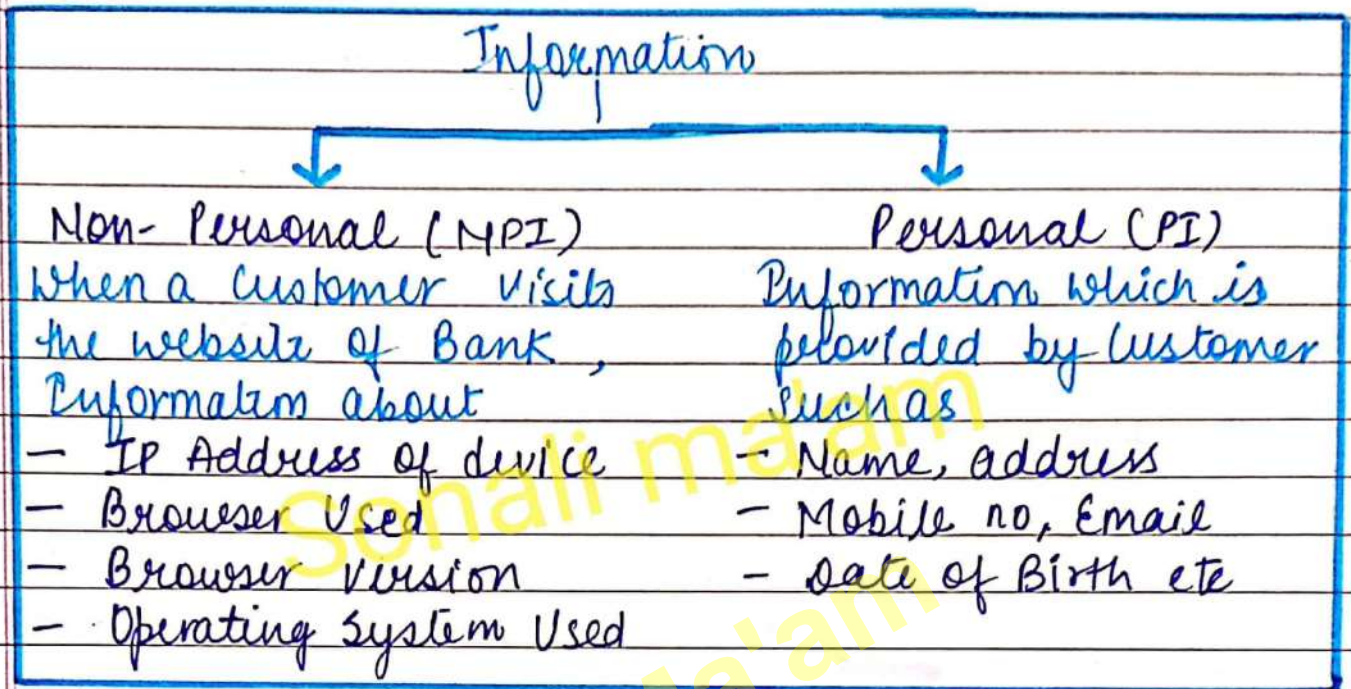 Information
Non-Personal (NPI)
When a Customer visits
the website of Bank,
Information about
- IP Address of device
- Browser Used
- Browser Version
- Operating System Used
Personal (PI)
Information which is
provided by Customer
such as
- Name, address
- Mobile no, Email
- Date of Birth etc
Sonali ma'am
ma'am